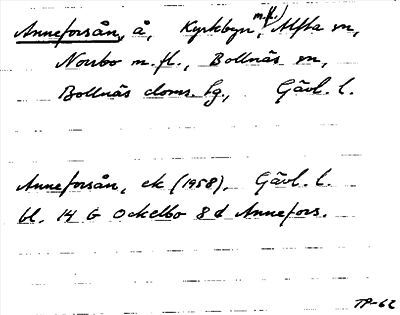 Anneforsån, å, Kyrkbyn m.fl., Alfta sn,
Norrbo m.fl., Bollnäs sn,
Bollnäs doms. hg., Gävl. l.
Anneforsån, ek (1958). Gävl. l.
bl. 14 G Ockelbo 8 d Annefors.
TP-62